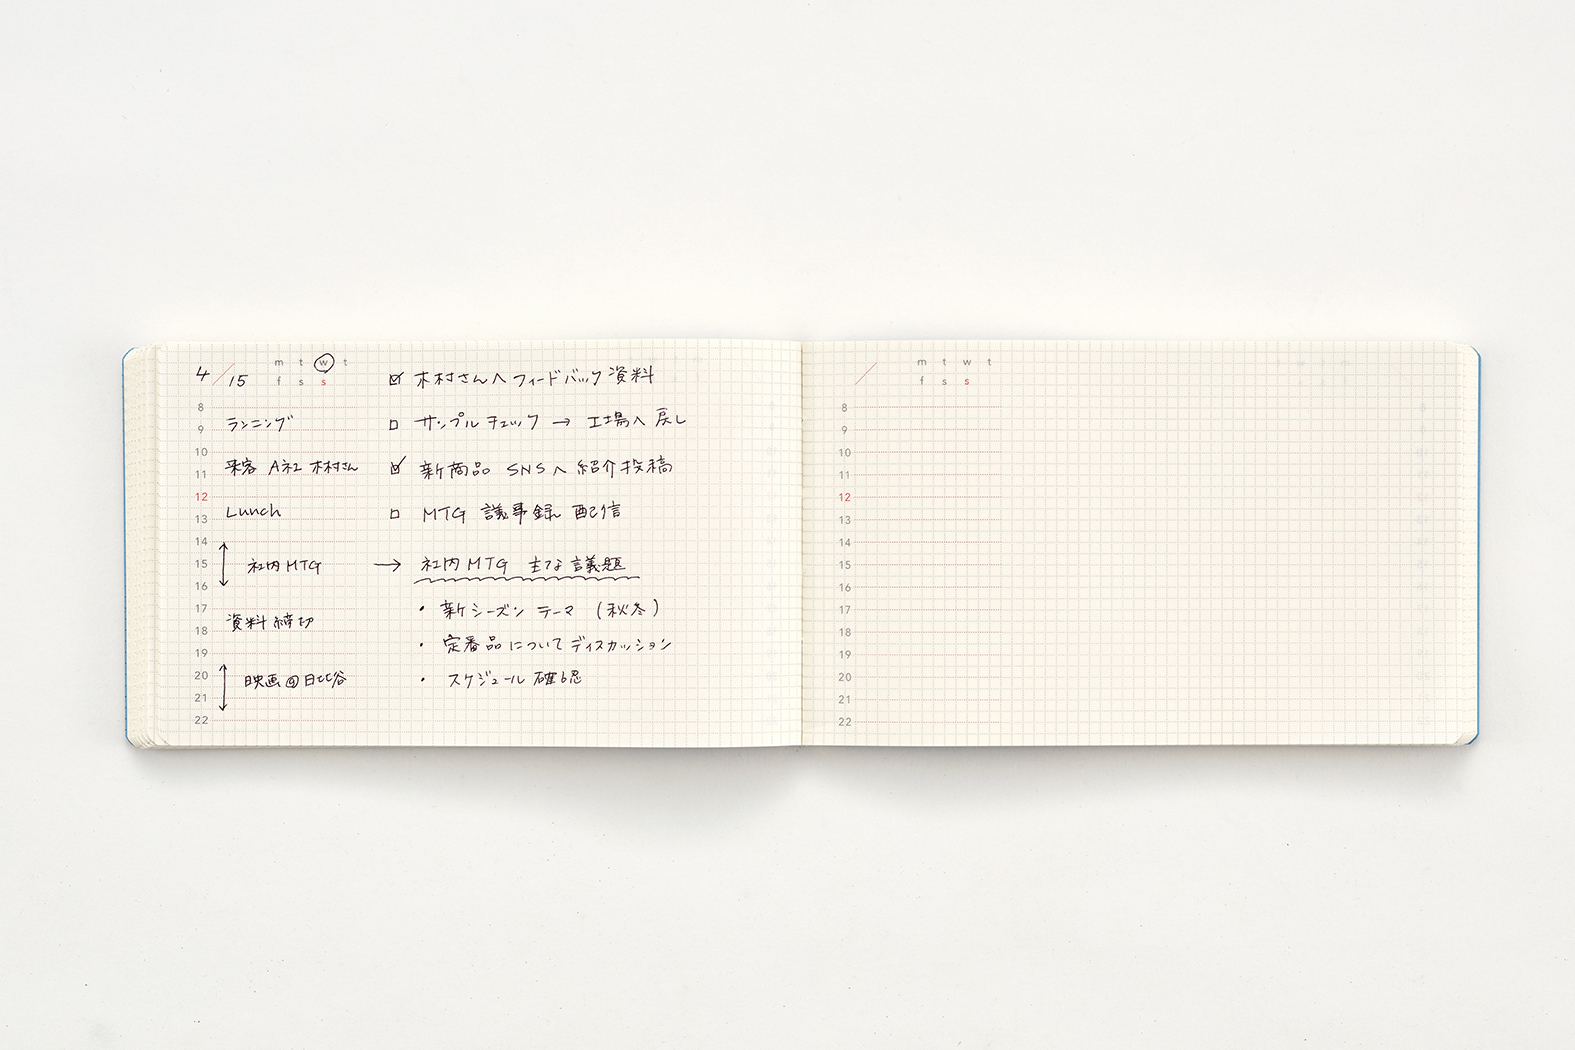 4/15
m t w t
f s s
8
9 ランニング
10
11 来客 A社 木村さん
12
13 Lunch
14
15 社内MTG →
16
17
18 資料締切
19
20 映画@日比谷
21
22
☑ 木村さんへフィードバック資料
□ サンプルチェック → 工場へ戻し
☑ 新商品 SNSへ紹介投稿
□ MTG 議事録 配信
社内MTG 主な議題
・新シーズン テーマ (秋冬)
・定番品についてディスカッション
・スケジュール確認
/
m t w t
f s s
8
9
10
11
12
13
14
15
16
17
18
19
20
21
22